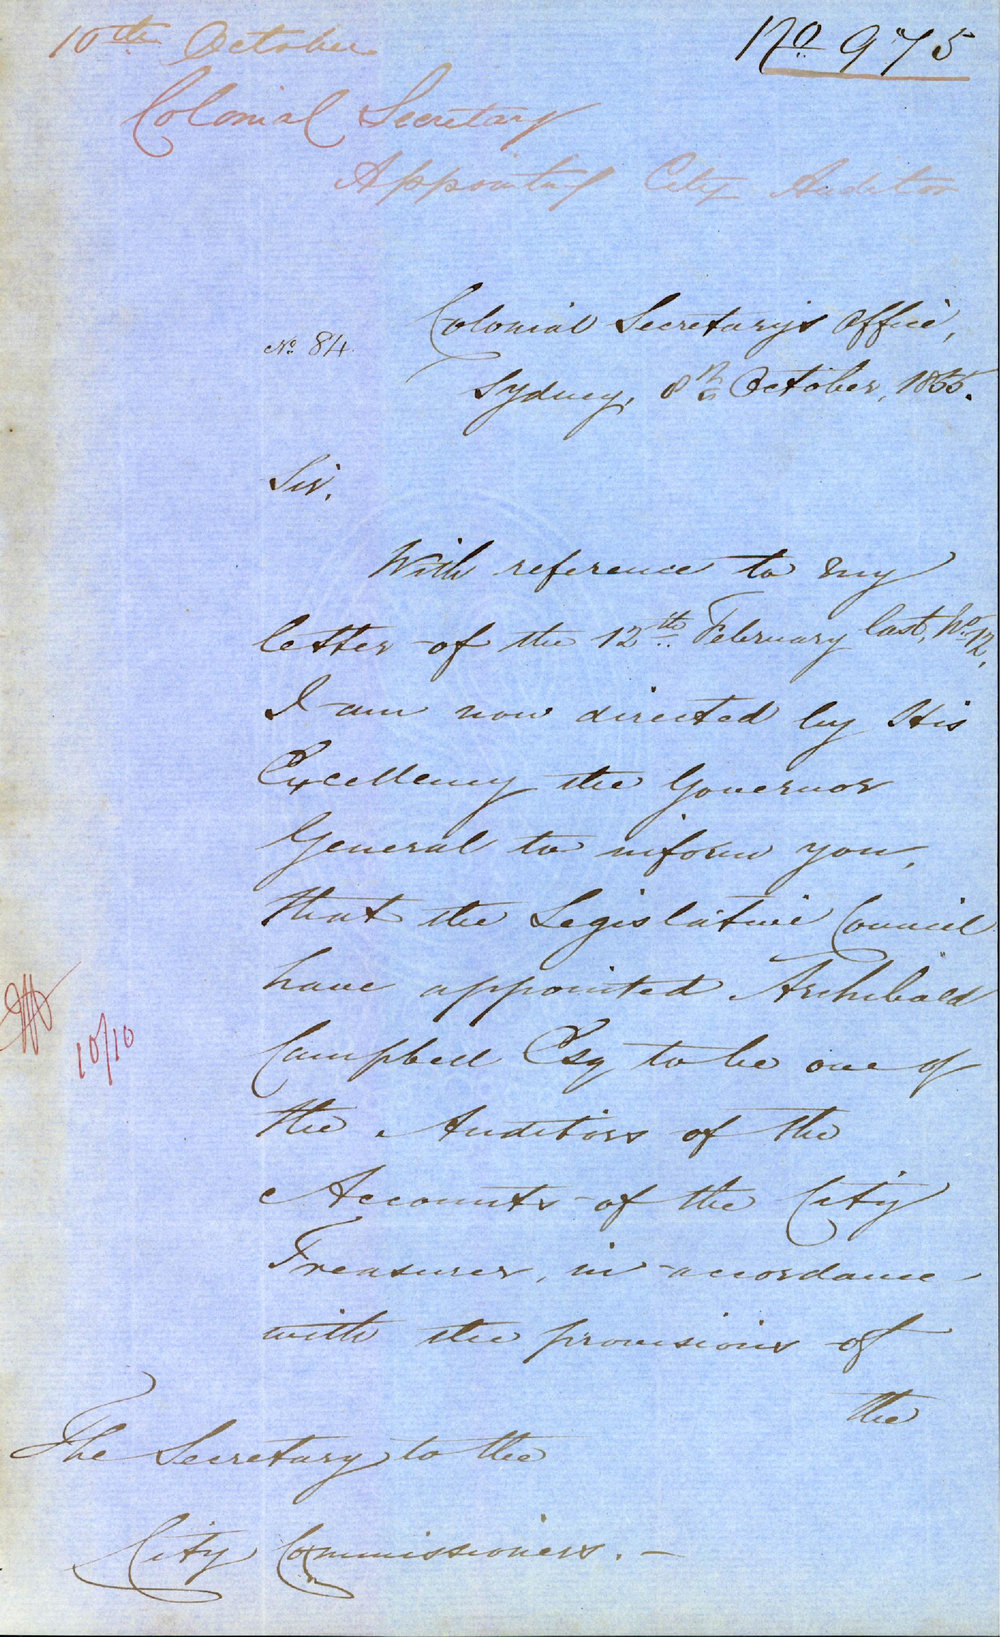 10th October
No 975
Colonial Secretary
Appointing City Auditor
No. 84.
Colonial Secretary's Office,
Sydney, 8th October, 1855.
Sir,
With reference to my
letter of the 12th February last, No 12,
I am now directed by His
Excellency the Governor
General to inform you,
that the Legislative Council
have appointed Archibald
Campbell Esq to be one of
10/10
the Auditors of the
Accounts of the City
Treasurer, in accordance
with the provisions of
the
The Secretary to the
City Commissioners. —